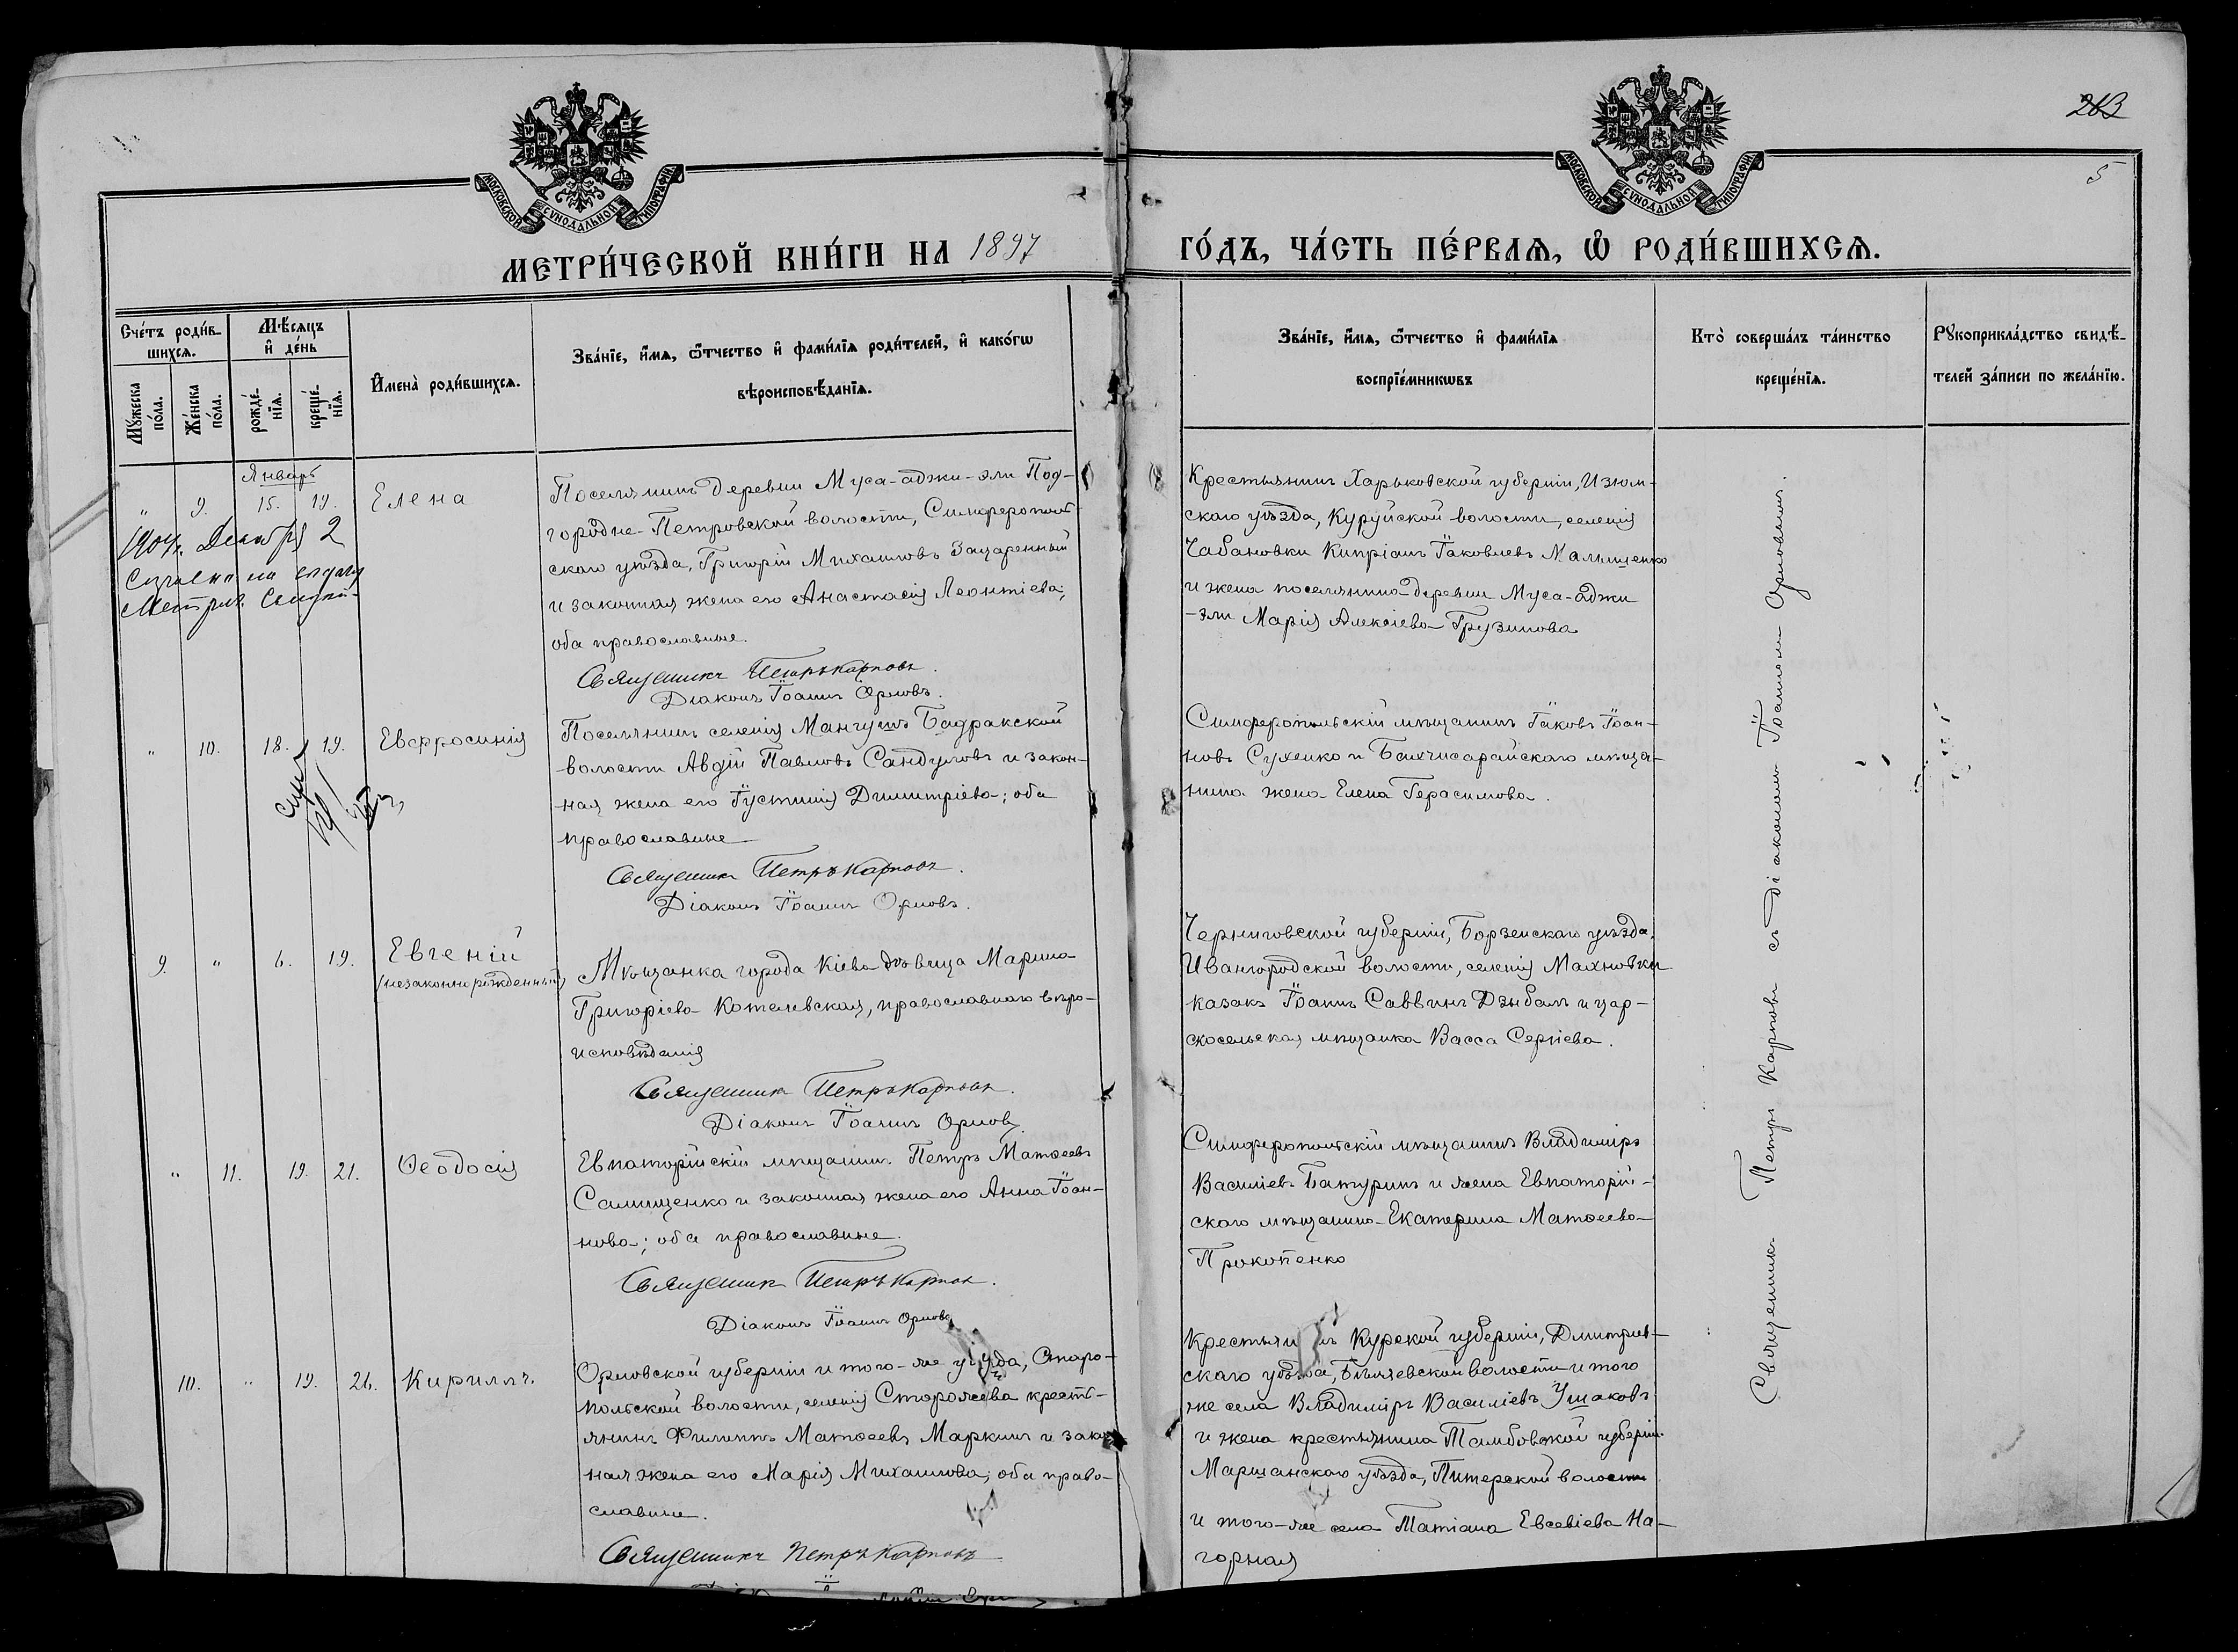 263
5
МОСКОВСКОЙ СѴНОДАЛЬНОЙ ТИПОГРАФІИ
МОСКОВСКОЙ СѴНОДАЛЬНОЙ ТИПОГРАФІИ
МЕТРИ́ЧЕСКОЙ КНИ́ГИ НА 1897 ГО́ДЪ, ЧА́СТЬ ПЕ́РВАѦ, Ѽ РОДИ́ВШИХСѦ.
Сче́тъ роди́в-
шихсѧ.
Мꙋ́жеска по́ла.
Же́нска по́ла.
Мѣ́сѧцъ и҆ де́нь
рожде́-нїѧ.
креще́-нїѧ.
И҆мена̀ роди́вшихсѧ.
Зва́нїе, и҆́мѧ, ѻ҆́тчество и҆ фами́лїѧ роди́телей, и҆ како́гѡ
вѣроисповѣ́данїѧ.
Зва́нїе, и҆́мѧ, ѻ҆́тчество и҆ фами́лїѧ
воспрїе́мникѡвъ
Кто̀ соверша́лъ та́инство
креще́нїѧ.
Рꙋкоприкла́дство свидѣ́-
телей за́писи по жела́нїю.
Январь
" 9. 15. 19. Елена
1904. Декабря 2
Поселянинъ деревни Муса-аджи-эли Под-
городне-Петровской волости, Симферополь-
скаго уѣзда, Григорій Михаиловъ Зацаренный
и законная жена его Анастасія Леонтіева;
оба православные.
Священникъ Петръ Карповъ.
Діаконъ Іоаннъ Орловъ.
Крестьянинъ Харьковской губерніи, Изюм-
скаго уѣзда, Куруйской волости, селенія
Чабановки Кипріанъ Іаковлевъ Малышенко
и жена поселянина деревни Муса-аджи
-эли Марія Алексіева Грузинова
" 10. 18. 19. Евфросинія
Поселянинъ селенія Мангушъ Бадракской
волости Авдій Павловъ Сандуловъ и закон-
ная жена его Іустинія Димитріева; оба
православные
Священникъ Петръ Карповъ.
Діаконъ Іоаннъ Орловъ.
Симферопольскій мѣщанинъ Іаковъ Іоан-
новъ Сухенко и Бахчисарайскаго мѣща-
нина жена Елена Герасимова.
9. " 6. 19. Евгеній
(незаконнорожденный)
Мѣщанка города Кіева дѣвица Марина
Григоріева Котелевская, православнаго вѣро-
исповѣданія
Священникъ Петръ Карповъ.
Діаконъ Іоаннъ Орловъ.
Черниговской губерніи, Борзенскаго уѣзда,
Ивангородской волости, селенія Махновки
казакъ Іоаннъ Саввинъ Дзюбалъ и цар-
скосельская мѣщанка Васса Сергіева.
" 11. 19. 21. Ѳеодосія
Евпаторійскій мѣщанинъ Петръ Матѳеевъ
Салищенко и законная жена его Анна Іоан-
нова; оба православные.
Священникъ Петръ Карповъ.
Діаконъ Іоаннъ Орловъ
Симферопольскій мѣщанинъ Владиміръ
Василіевъ Батуринъ и жена Евпаторій-
скаго мѣщанина Екатерина Матѳеева
Прокопенко
10. " 19. 26. Кириллъ.
Орловской губерніи и того-же уѣзда, Старо-
польской волости, селенія Сторожева кресть-
янинъ Филиппъ Матѳеевъ Маркинъ и закон-
ная жена его Марія Михаилова; оба право-
славные.
Священникъ Петръ Карповъ
Крестьянинъ Курской губерніи, Дмитріев-
скаго уѣзда, Бѣляевской волости и того
же села Владиміръ Василіевъ Ушаковъ
и жена крестьянина Тамбовской губерніи
Маршанскаго уѣзда, Питерской волости
и того-же села Татіана Евсевіева На-
горная
Священникъ Петръ Карповъ съ діакономъ Іоанномъ Орловымъ.